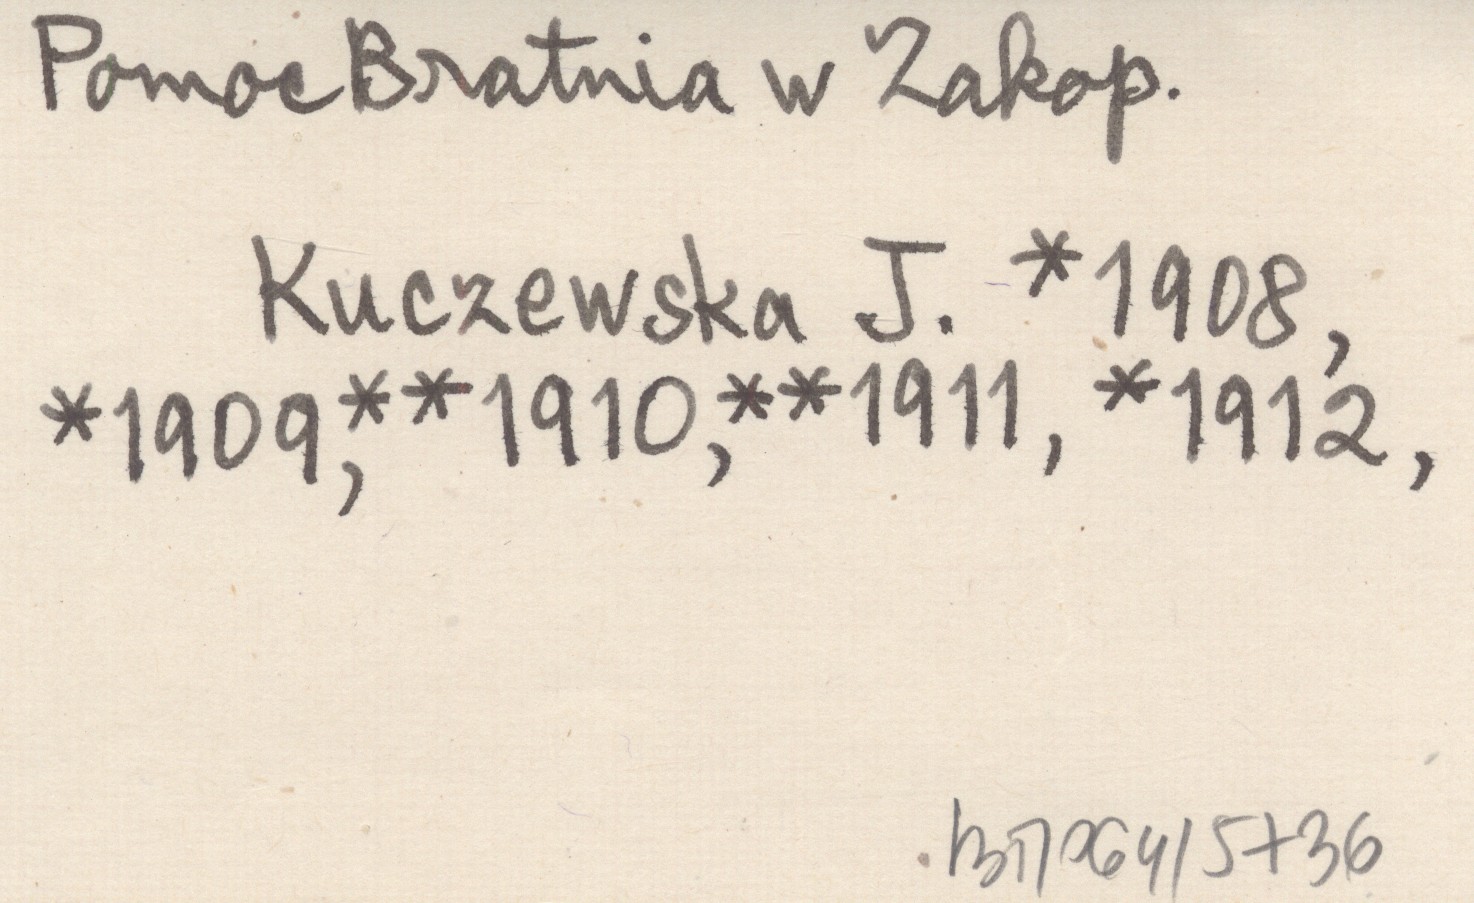 Pomoc Bratnia w Zakop.
Kuczewska J. *1908,
*1909, **1910, **1911, *1912,